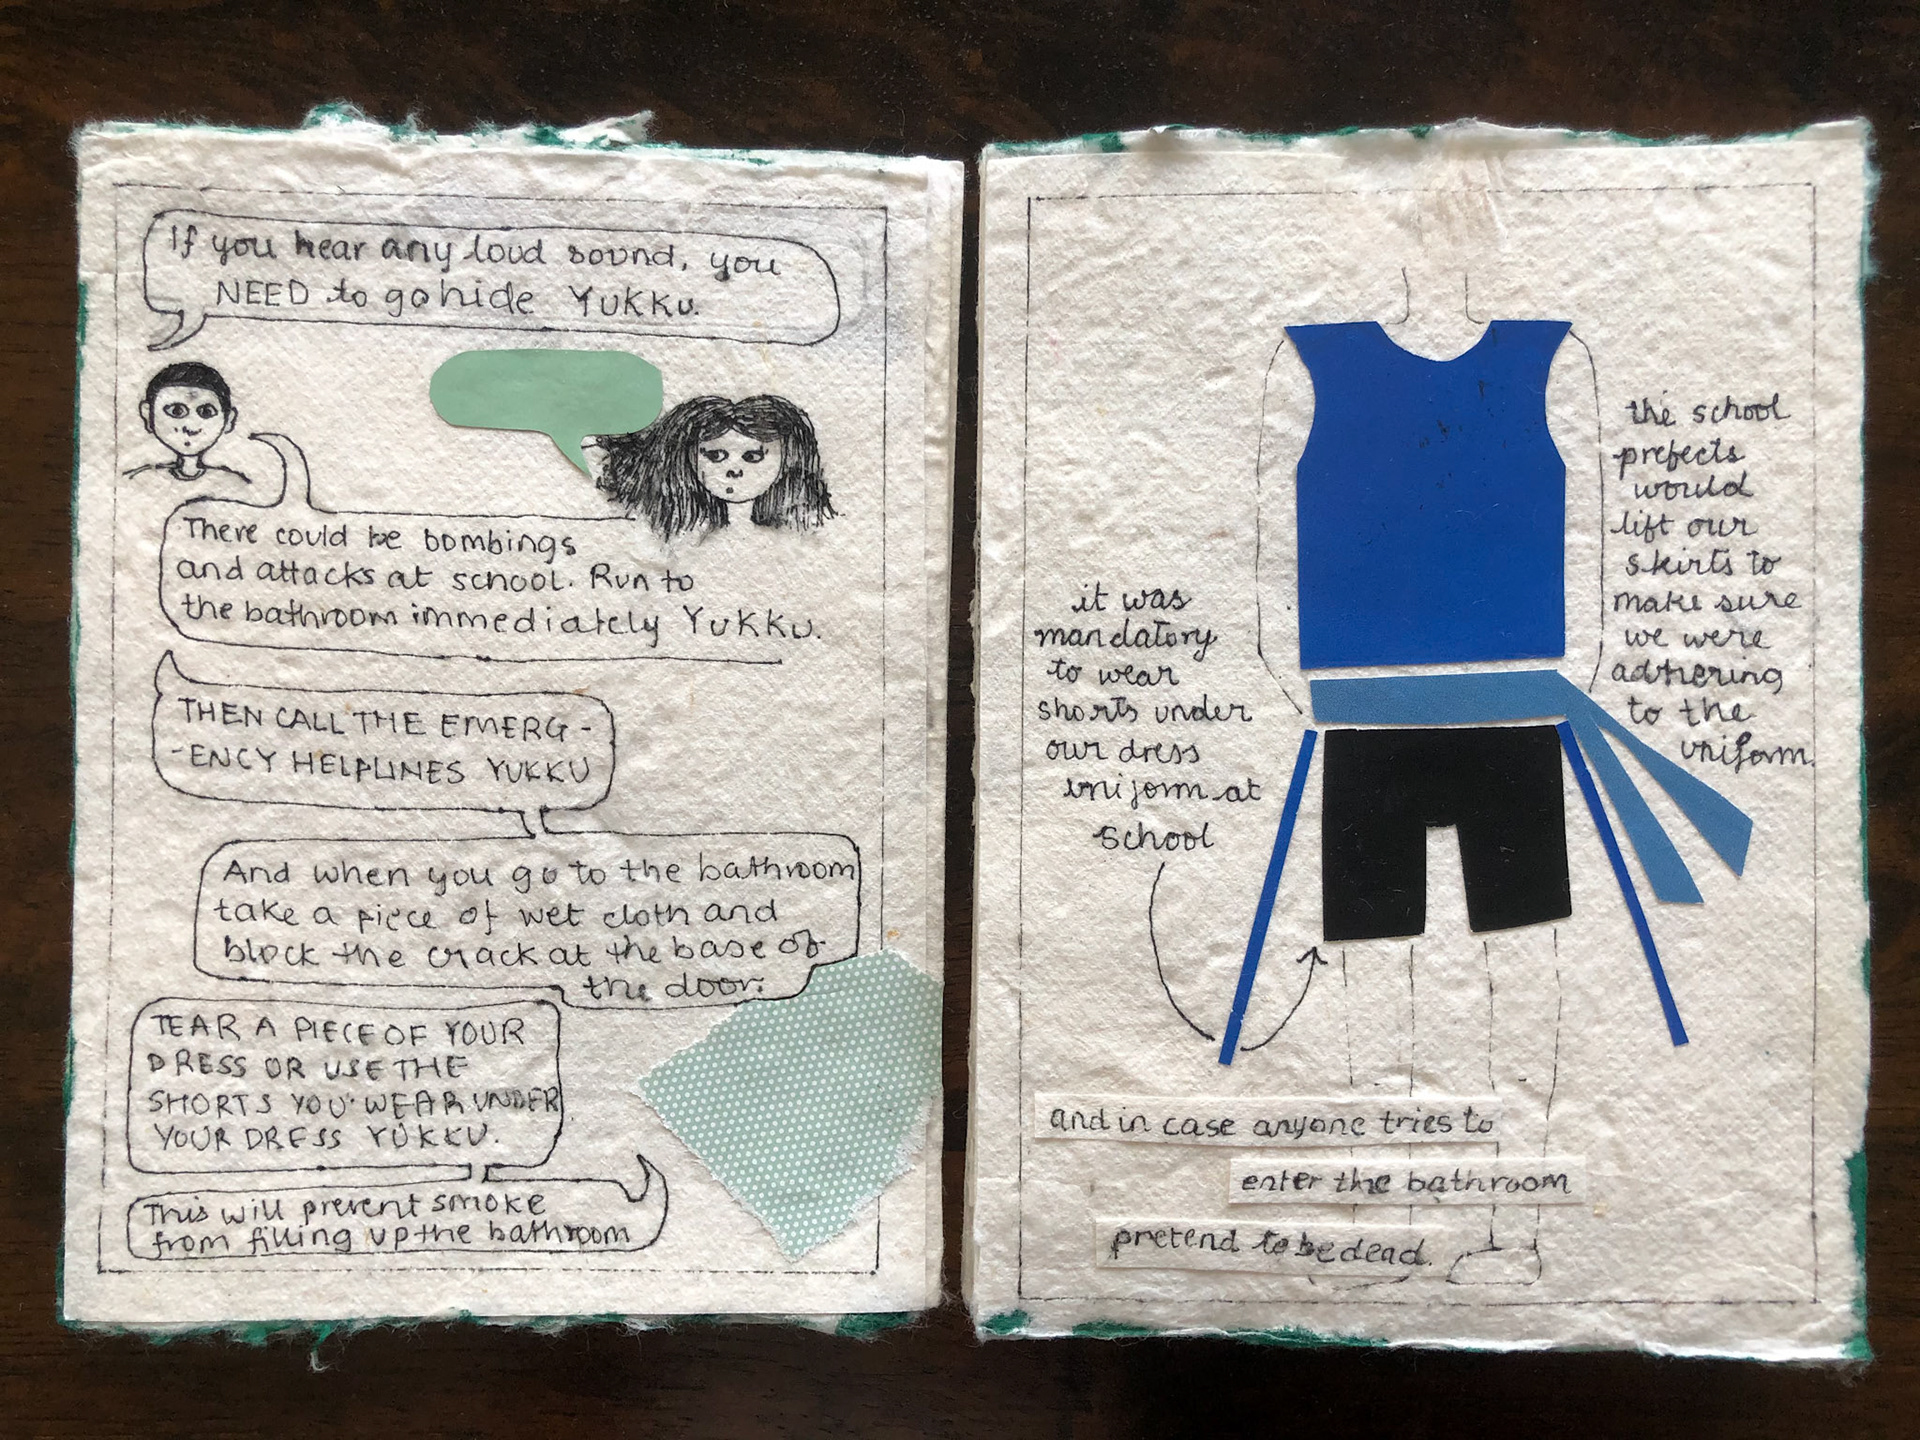 If you hear any loud sound, you
NEED to go hide YUKKU.
There could be bombings
and attacks at school. Run to
the bathroom immediately YUKKU.
THEN CALL THE EMERG-
-ENCY HELPLINES YUKKU
And when you go to the bathroom
take a piece of wet cloth and
block the crack at the base of
the door.
TEAR A PIECE OF YOUR
DRESS OR USE THE
SHORTS YOU WEAR UNDER
YOUR DRESS YUKKU.
This will prevent smoke
from filling up the bathroom
it was
mandatory
to wear
shorts under
our dress
uniform at
school
the school
prefects
would
lift our
skirts to
make sure
we were
adhering
to the
uniform.
and in case anyone tries to
enter the bathroom
pretend to be dead.